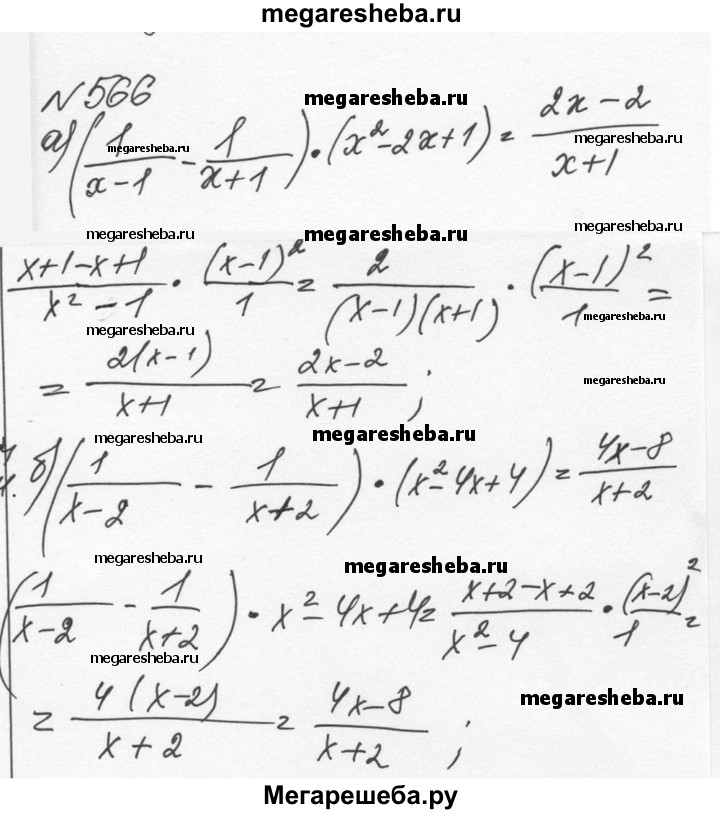 megaresheba.ru
N 566
megaresheba.ru
а) (1/(x-1) - 1/(x+1)) · (x²-2x+1) = (2x-2)/(x+1)
megaresheba.ru
megaresheba.ru
megaresheba.ru
megaresheba.ru megaresheba.ru megaresheba.ru
(x+1-x+1)/(x²-1) · (x-1)²/1 = 2/((x-1)(x+1)) · (x-1)²/1 =
megaresheba.ru
megaresheba.ru megaresheba.ru
= 2(x-1)/(x+1) = (2x-2)/(x+1) ;
megaresheba.ru
megaresheba.ru megaresheba.ru
б) (1/(x-2) - 1/(x+2)) · (x²-4x+4) = (4x-8)/(x+2)
megaresheba.ru megaresheba.ru
(1/(x-2) - 1/(x+2)) · x²-4x+4 = (x+2-x+2)/(x²-4) · (x-2)²/1 =
megaresheba.ru
= 4(x-2)/(x+2) = (4x-8)/(x+2) ;
megaresheba.ru
Мегарешеба.ру